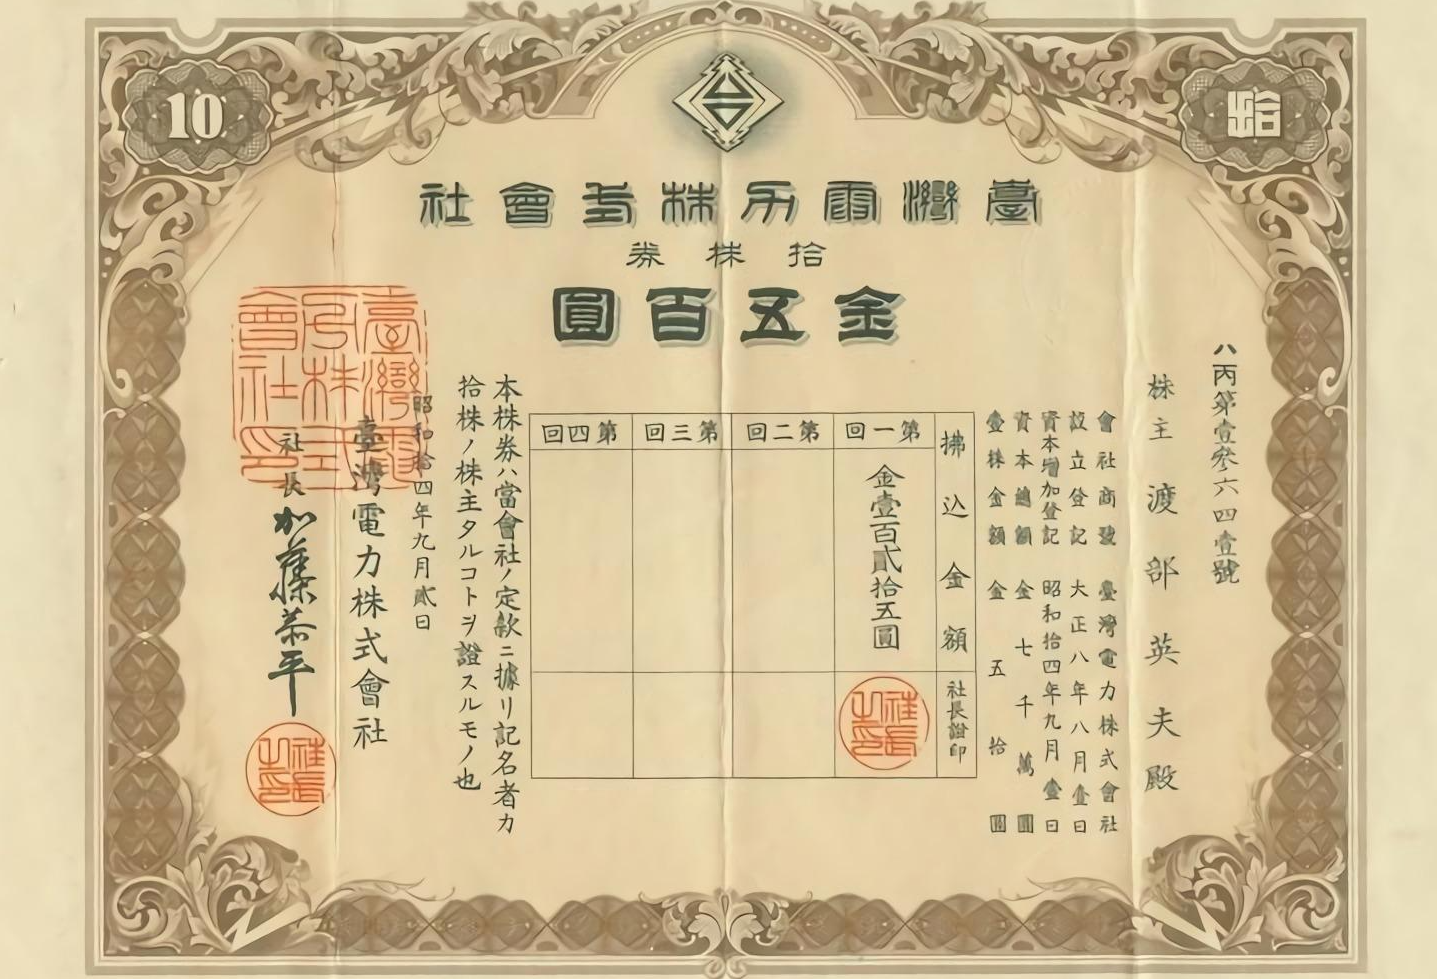 10
拾
臺灣電力株式會社
拾株券
金五百圓
八丙第壹参六四壹號
株主 渡部英夫殿
會社商號 臺灣電力株式會社
設立登記 大正八年八月壹日
資本增加登記 昭和拾四年九月壹日
資本總額 金七千萬圓
壹株金額 金五拾圓
拂込金額
社長證印
第一回
金壹百貳拾五圓
社長之印
第二回
第三回
第四回
本株券ハ當會社ノ定款ニ據リ記名者カ
拾株ノ株主タルコトヲ證スルモノ也
昭和拾四年九月貳日
臺灣電力株式會社
社長 加藤恭平
臺灣電力株式會社印
社長之印